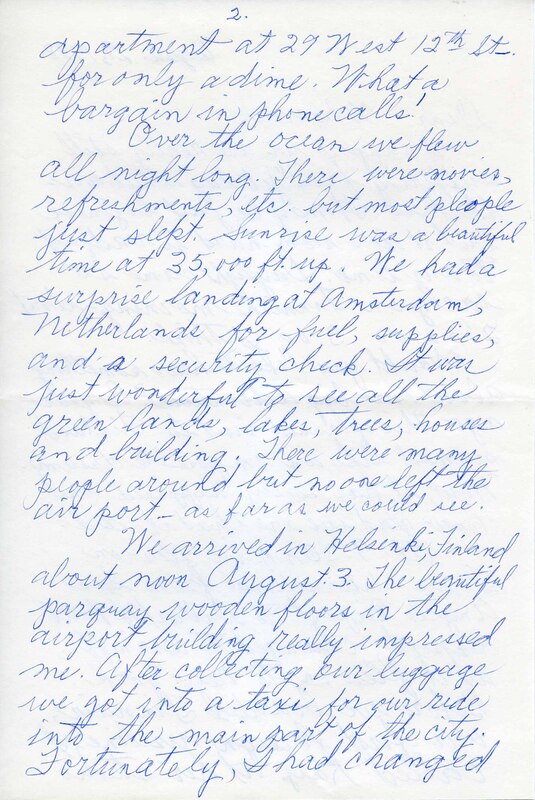 2.
apartment at 29 West 12th St.
for only a dime. What a
bargain in phone calls!
Over the ocean we flew
all night long. There were movies,
refreshments, etc. but most pleople
just slept. Sunrise was a beautiful
time at 35,000 ft. up. We had a
surprise landing at Amsterdam,
Netherlands for fuel, supplies,
and a security check. It was
just wonderful to see all the
green lands, lakes, trees, houses
and building. There were many
people around but no one left the
air port - as far as we could see.
We arrived in Helsinki, Finland
about noon August 3. The beautiful
parquay wooden floors in the
airport building really impressed
me. After collecting our luggage
we got into a taxi for our ride
into the main part of the city.
Fortunately, I had changed